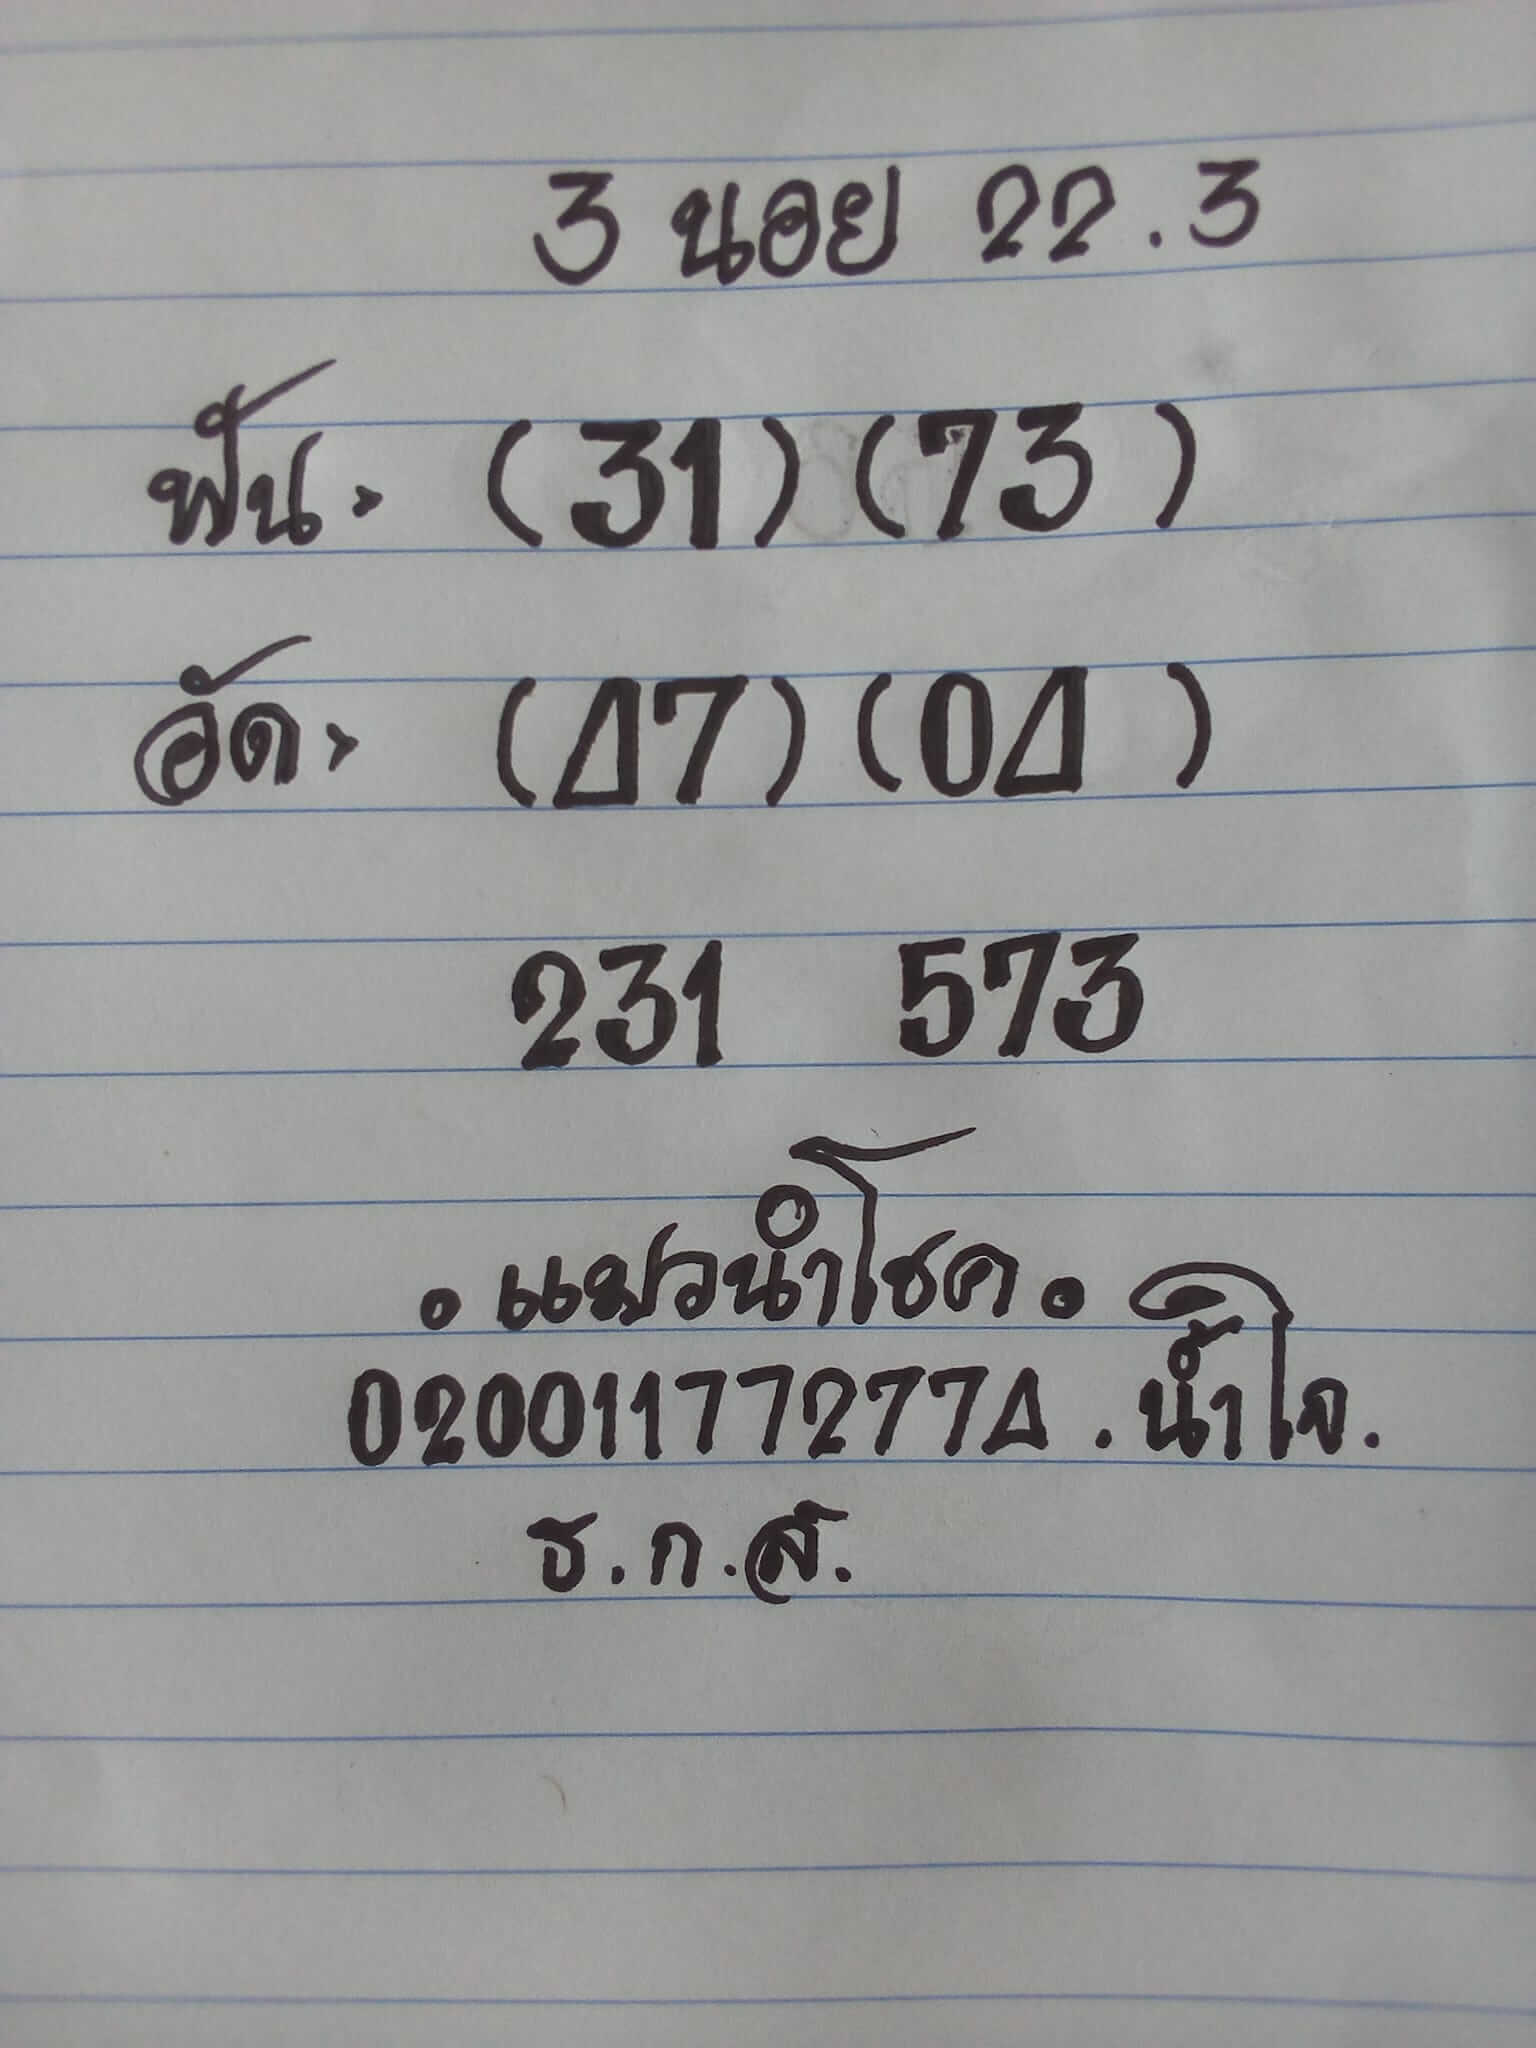 3 นอย 22.3
ฟัน > (31) (73)
อัด > (47) (04)
231 573
. แมวนำโชค .
020011772774 . น้ำใจ.
ธ.ก.ส.